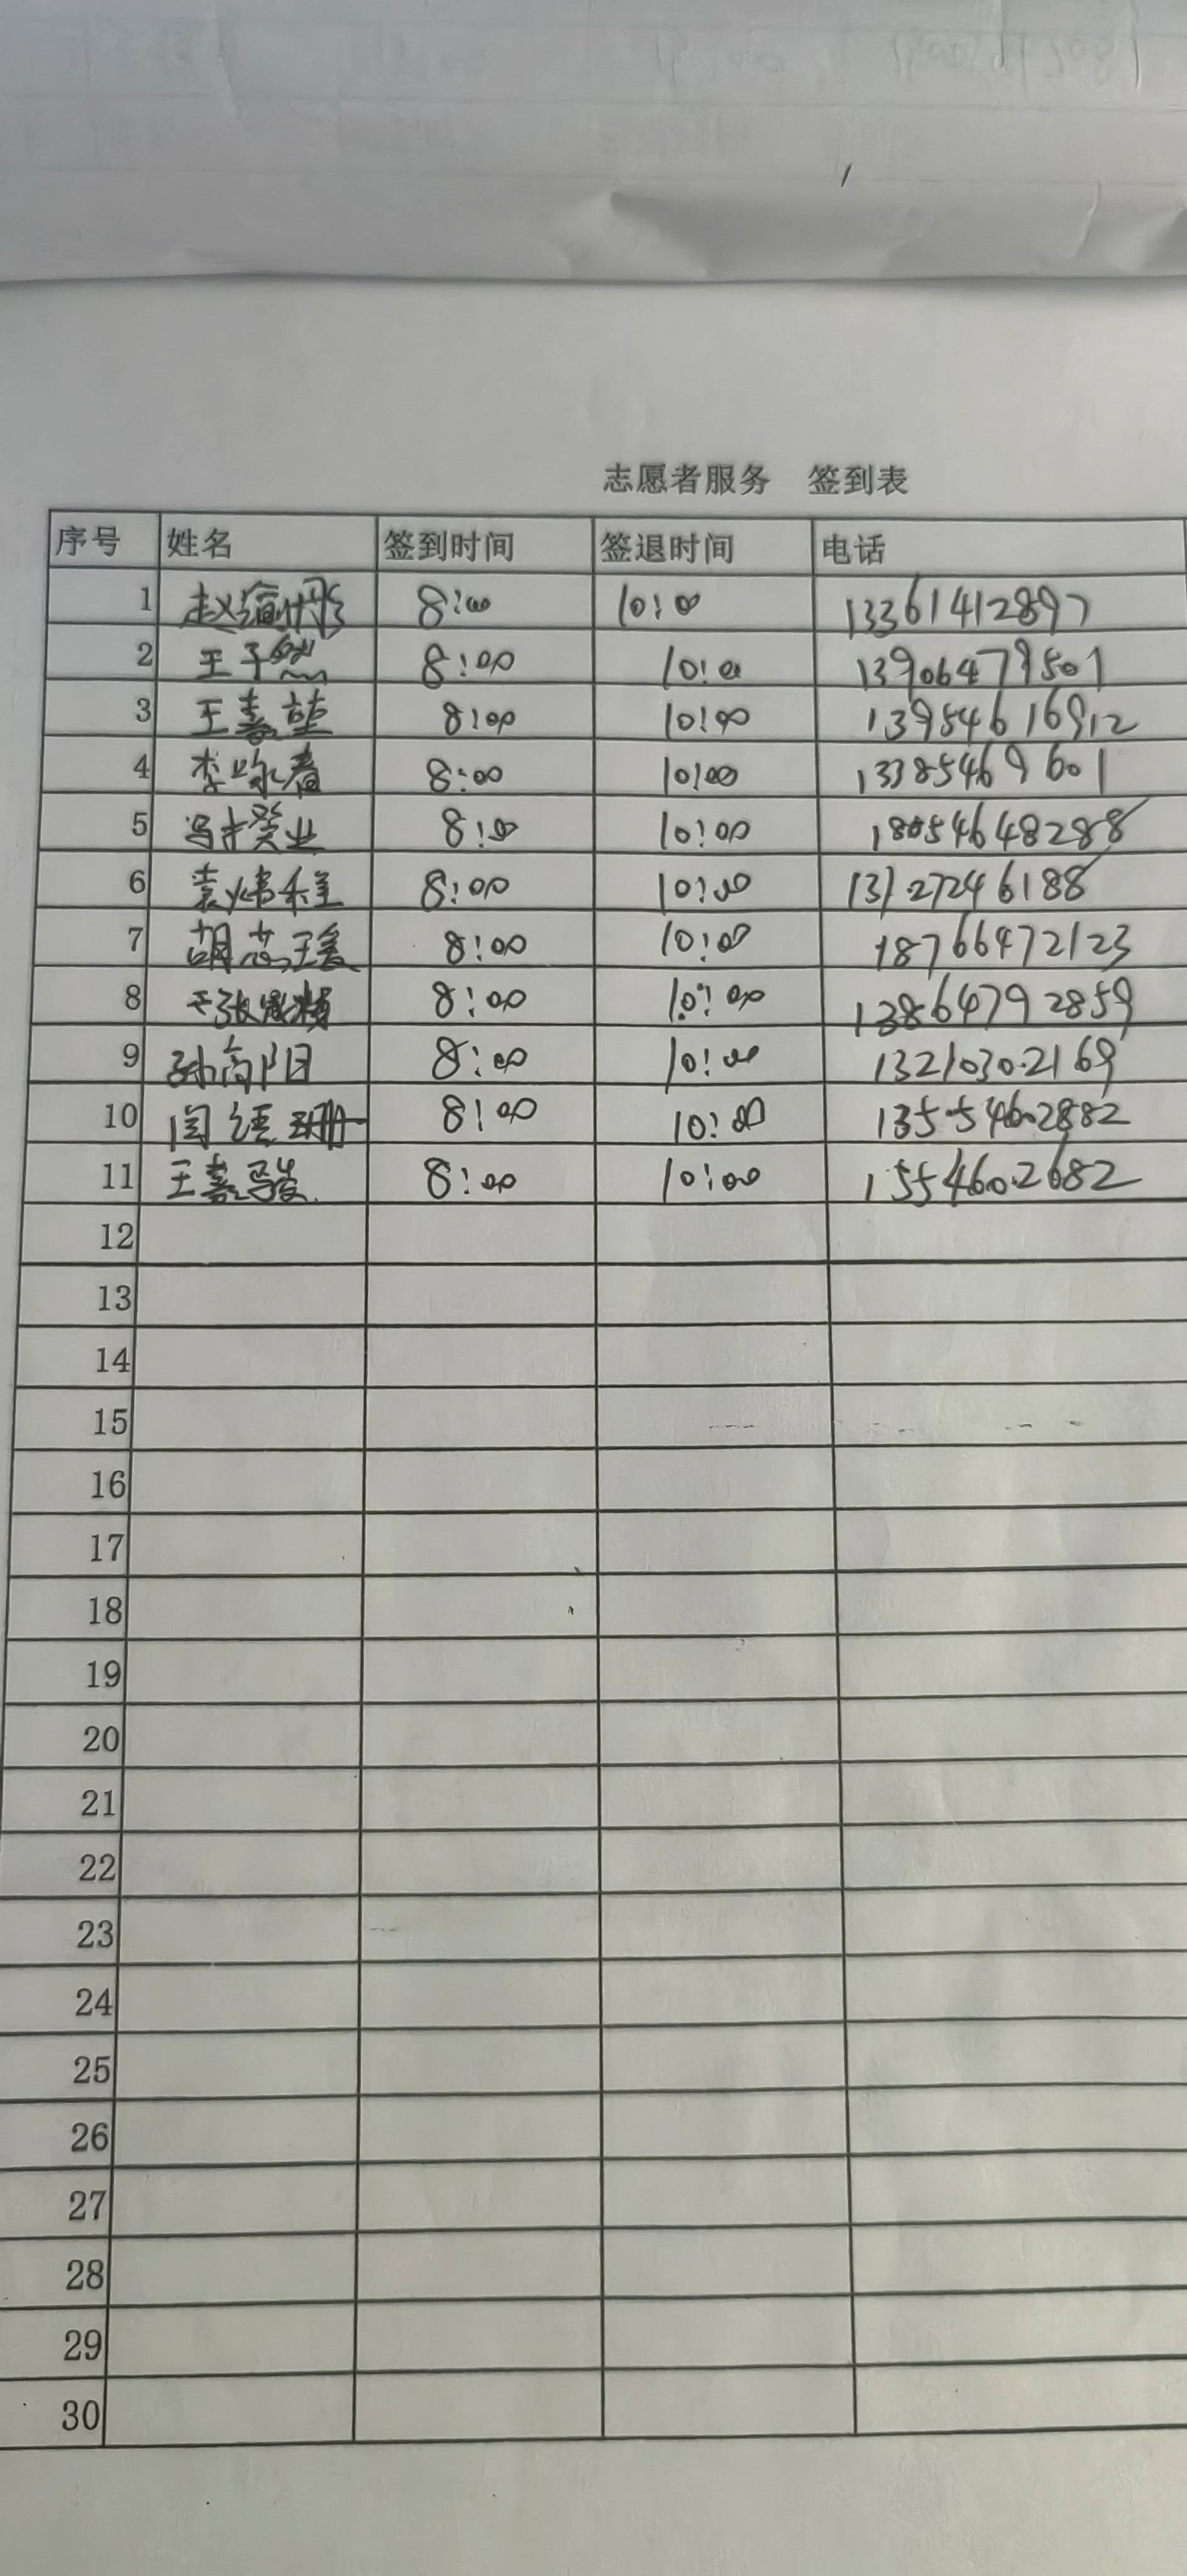 志愿者服务 签到表
序号 姓名 签到时间 签退时间 电话
1 赵 8:00 10:00 13361412897
2 王子 8:00 10:00 13906479501
3 王嘉 8:00 10:00 13954616912
4 李 8:00 10:00 13385469601
5 冯 业 8:00 10:00 18054648288
6 袁炜程 8:00 10:00 13127246188
7 胡芯瑗 8:00 10:00 18766472123
8 8:00 10:00 13864792859
9 孙向阳 8:00 10:00 13210302169
10 闫 珊 8:00 10:00 13554602882
11 王嘉骏 8:00 10:00 1554602682
12
13
14
15
16
17
18
19
20
21
22
23
24
25
26
27
28
29
30